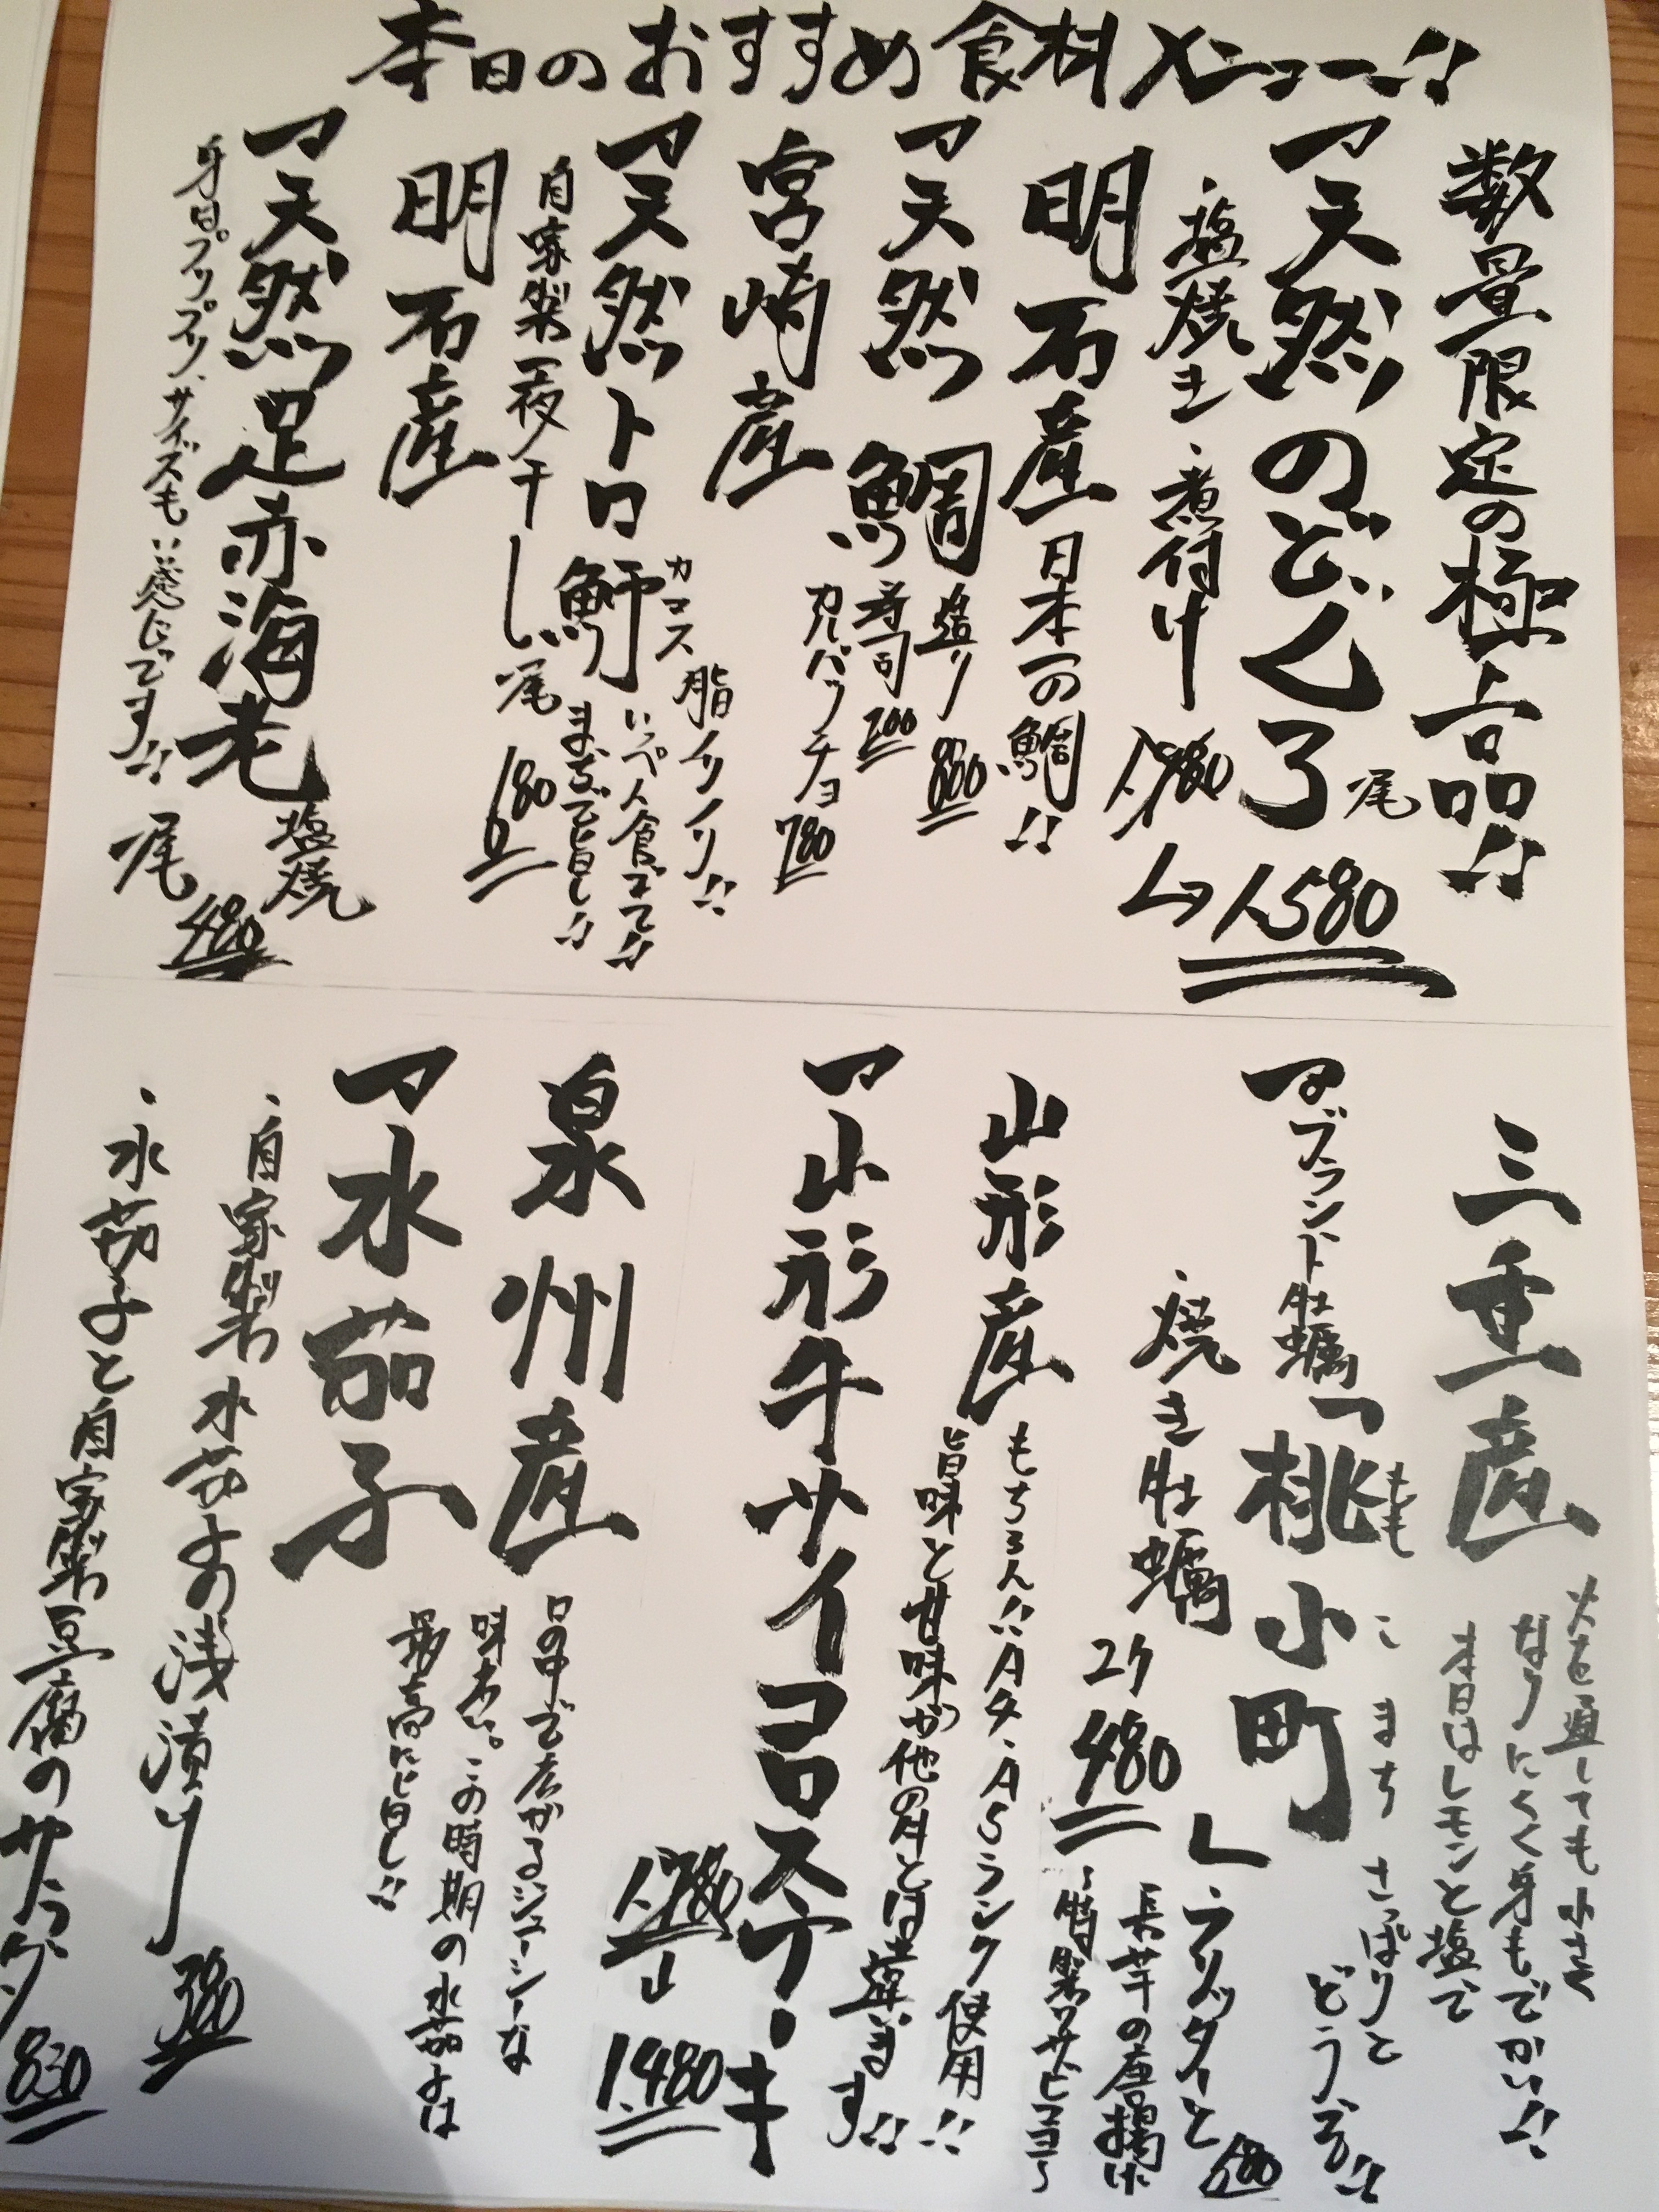 本日のおすすめ食料メニュー!!
数量限定の極上品!!
天然のどぐろ 尾
・塩焼き・煮付け
1,780
↳1,580
明石産 日本一の鯛!!
天然 鯛
造り 880
寿司 200
カルパッチョ 780
宮崎産
天然トロ魳
カマス
脂ノリノリ!!
いっぺん食ってて!!
まぢで旨し!!
自家製一夜干し 尾 180
明石産
天然足赤海老 塩焼
尾 480
身はプリプリ、サイズもいい感じです!!
三重産
火を通しても小さく
なりにくく身もでかい!!
本日はレモンと塩で
さっぱりと
どうぞ!!
ブランド牡蠣「桃小町」
もも こまち
・焼き牡蠣 2ケ 480
・フリッターと
長芋の唐揚げ
〜特製ワサビマヨ〜
680
山形産
もちろん!!A4・A5ランク使用!!
旨味と甘味が他の肉とは違います!!
山形牛サイコロステーキ
1,780
↳1,480
泉州産
水茄子
口の中で広がるジューシーな
味わい。この時期の水茄子は
最高に旨し!!
・自家製水茄子の浅漬け 380
・水茄子と自家製豆腐のサラダ 830